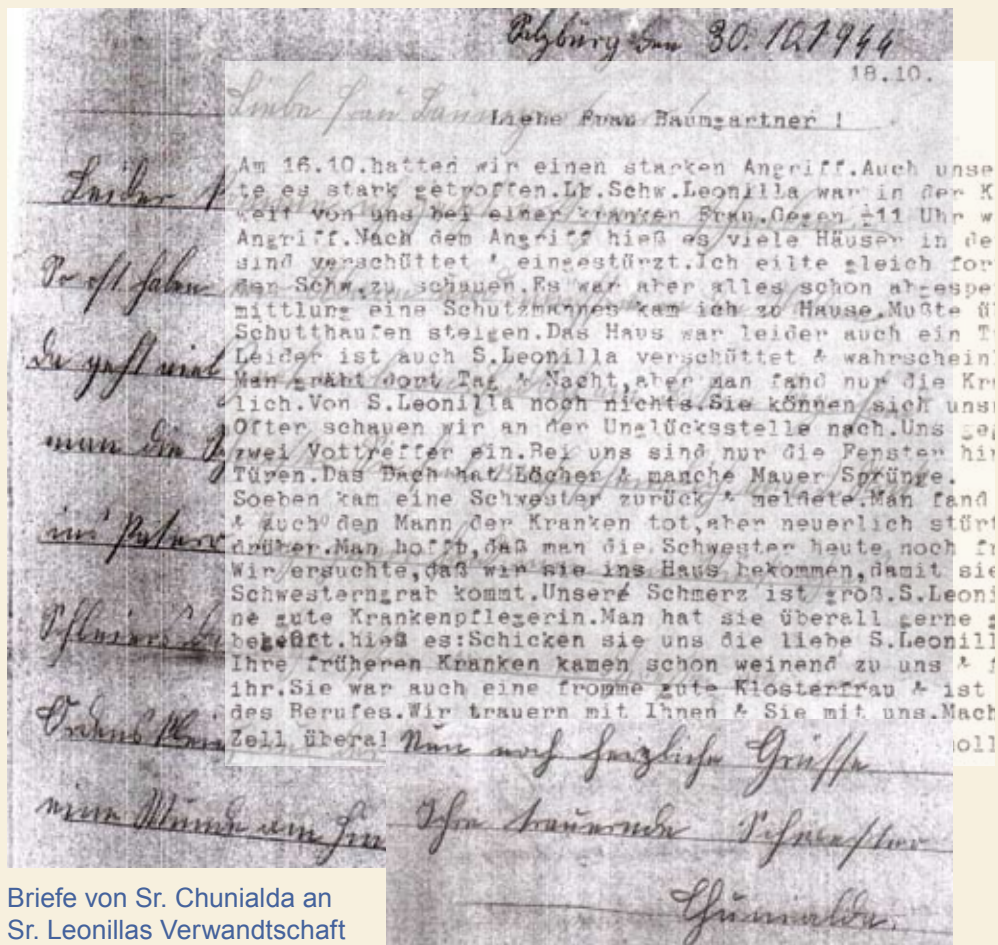 Salzburg den 30.10.1944
18.10.
Liebe Frau
Liebe Frau Baumgartner !
Am 16.10.hatten wir einen starken Angriff.Auch unse
te es stark getroffen.Lb.Schw.Leonilla war in der K
weit von uns bei einer kranken Frau.Gegen ½11 Uhr w
Angriff.Nach dem Angriff hieß es viele Häuser in de
sind verschüttet & eingestürzt.Ich eilte gleich for
den Schw.zu schauen.Es war aber alles schon abgespe
mittlung eine Schutzmannes kam ich zu Hause.Mußte ü
Schutthaufen steigen.Das Haus war leider auch ein T
Leider ist auch S.Leonilla verschüttet & wahrschein
Man gräbt dort Tag & Nacht,aber man fand nur die Kra
lich.Von S.Leonilla noch nichts.Sie können sich uns
Öfter schauen wir an der Unglücksstelle nach.Uns ge
zwei Vottreffer ein.Bei uns sind nur die Fenster hi
Türen.Das Dach hat Löcher & manche Mauer Sprünge.
Soeben kam eine Schwester zurück & meldete.Man fand
& auch den Mann der Kranken tot,aber neuerlich stürt
drüber.Man hofft,daß man die Schwester heute noch f
Wir ersuchte,daß wir sie ins Haus bekommen,damit sie
Schwesterngrab kommt.Unsere Schmerz ist groß.S.Leoni
ne gute Krankenpflegerin.Man hat sie überall gerne g
hieß es:Schicken sie uns die liebe S.Leonill
Ihre früheren Kranken kamen schon weinend zu uns &
ihr.Sie war auch eine fromme gute Klosterfrau & ist
des Berufes.Wir trauern mit Ihnen & Sie mit uns.Mach
Zell überal
oll
Leider
So oft haben
Da geht viel
man die
ins
Schleiers
Ordens Klei
eine Wunde am Hin
Nun noch herzliche Grüsse
Ihre trauernde Schwester
Chunialda.
Briefe von Sr. Chunialda an
Sr. Leonillas Verwandtschaft